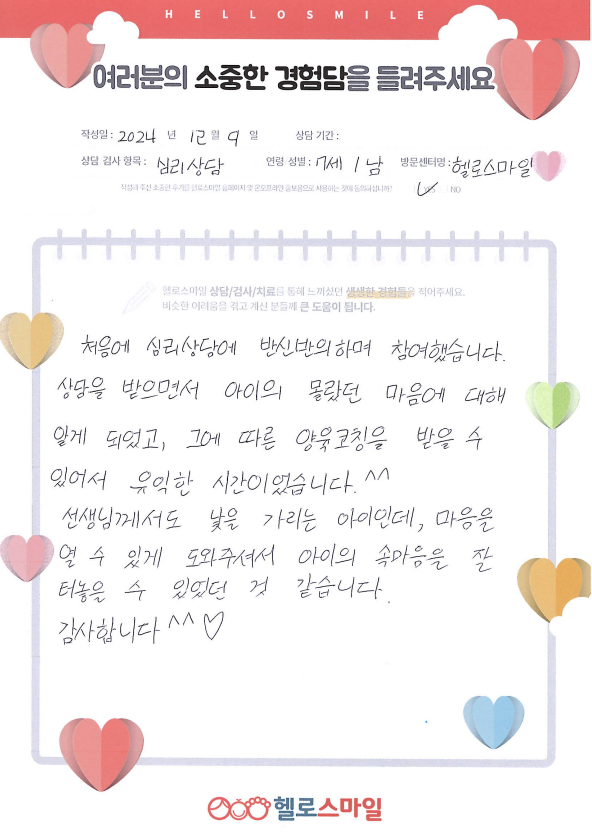 HELLOSMILE
여러분의 소중한 경험담을 들려주세요
작성일 : 2024 년 12 월 9 일 상담 기간 :
상담 검사 항목 : 심리상담 연령 성별 : 7세 / 남 방문센터명 : 헬로스마일
작성해 주신 소중한 후기를 헬로스마일 홈페이지 및 온오프라인 홍보용으로 사용하는 것에 동의하십니까? YES NO
헬로스마일 상담/검사/치료를 통해 느끼셨던 생생한 경험들을 적어주세요.
비슷한 어려움을 겪고 계신 분들께 큰 도움이 됩니다.
처음에 심리상담에 반신반의하며 참여했습니다.
상담을 받으면서 아이의 몰랐던 마음에 대해
알게 되었고, 그에 따른 양육코칭을 받을 수
있어서 유익한 시간이었습니다.^^
선생님께서도 낯을 가리는 아이인데, 마음을
열 수 있게 도와주셔서 아이의 속마음을 잘
터놓을 수 있었던 것 같습니다.
감사합니다^^♡
헬로스마일